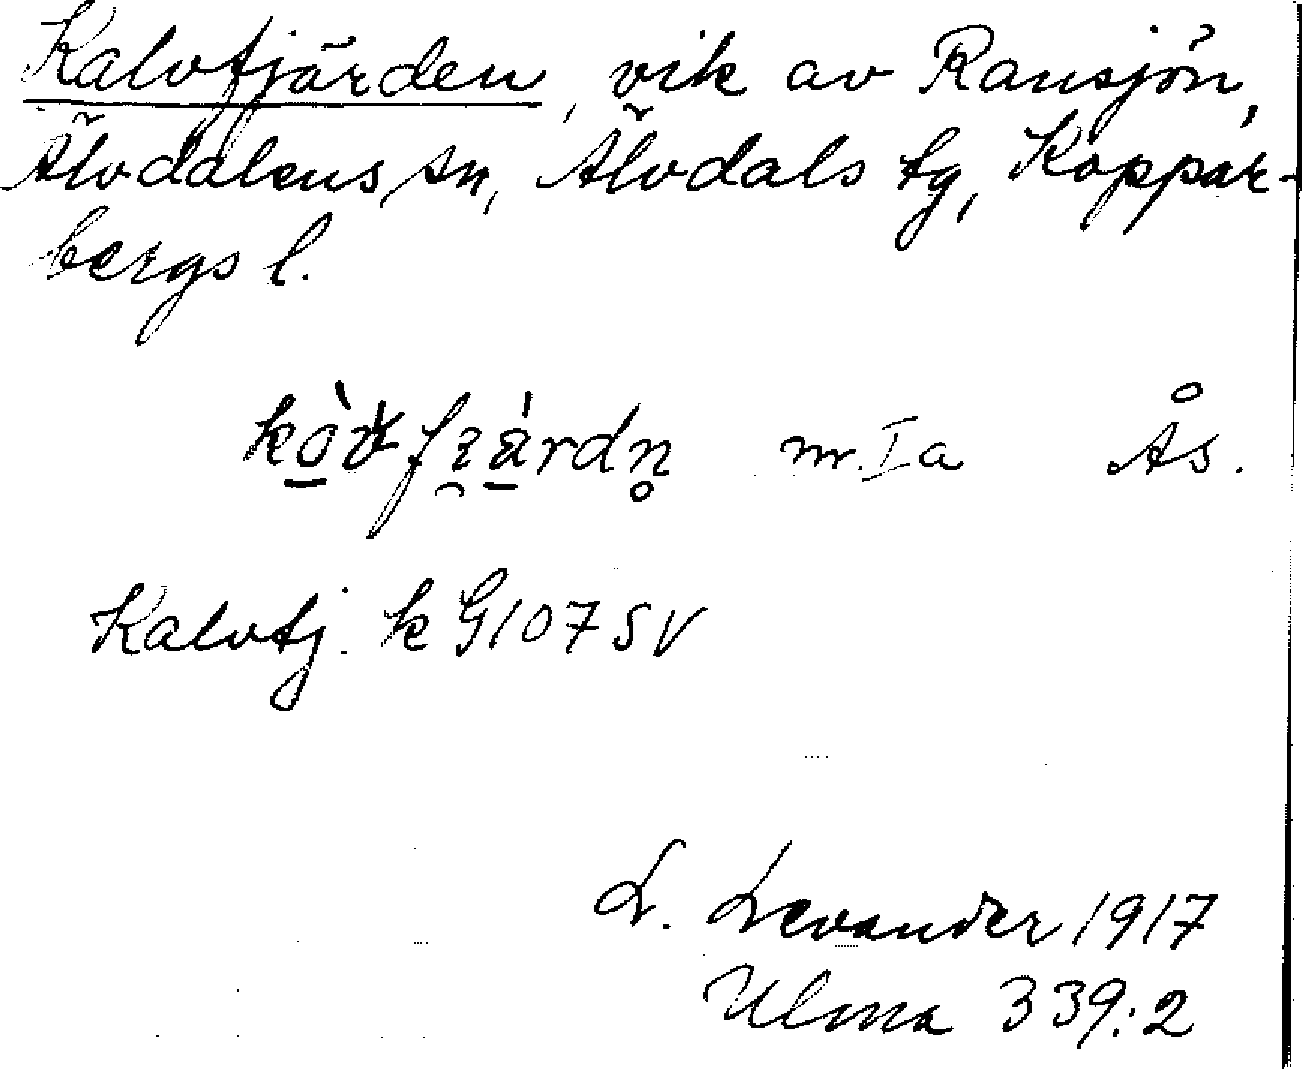 Kalvfjärden, vik av Ransjön,
Älvdalens sn, Älvdals tg, Koppar-
bergs l.
m. I a Ås.
Kalvfj. k G107SV
L. Levander 1917
Ulma 339:2